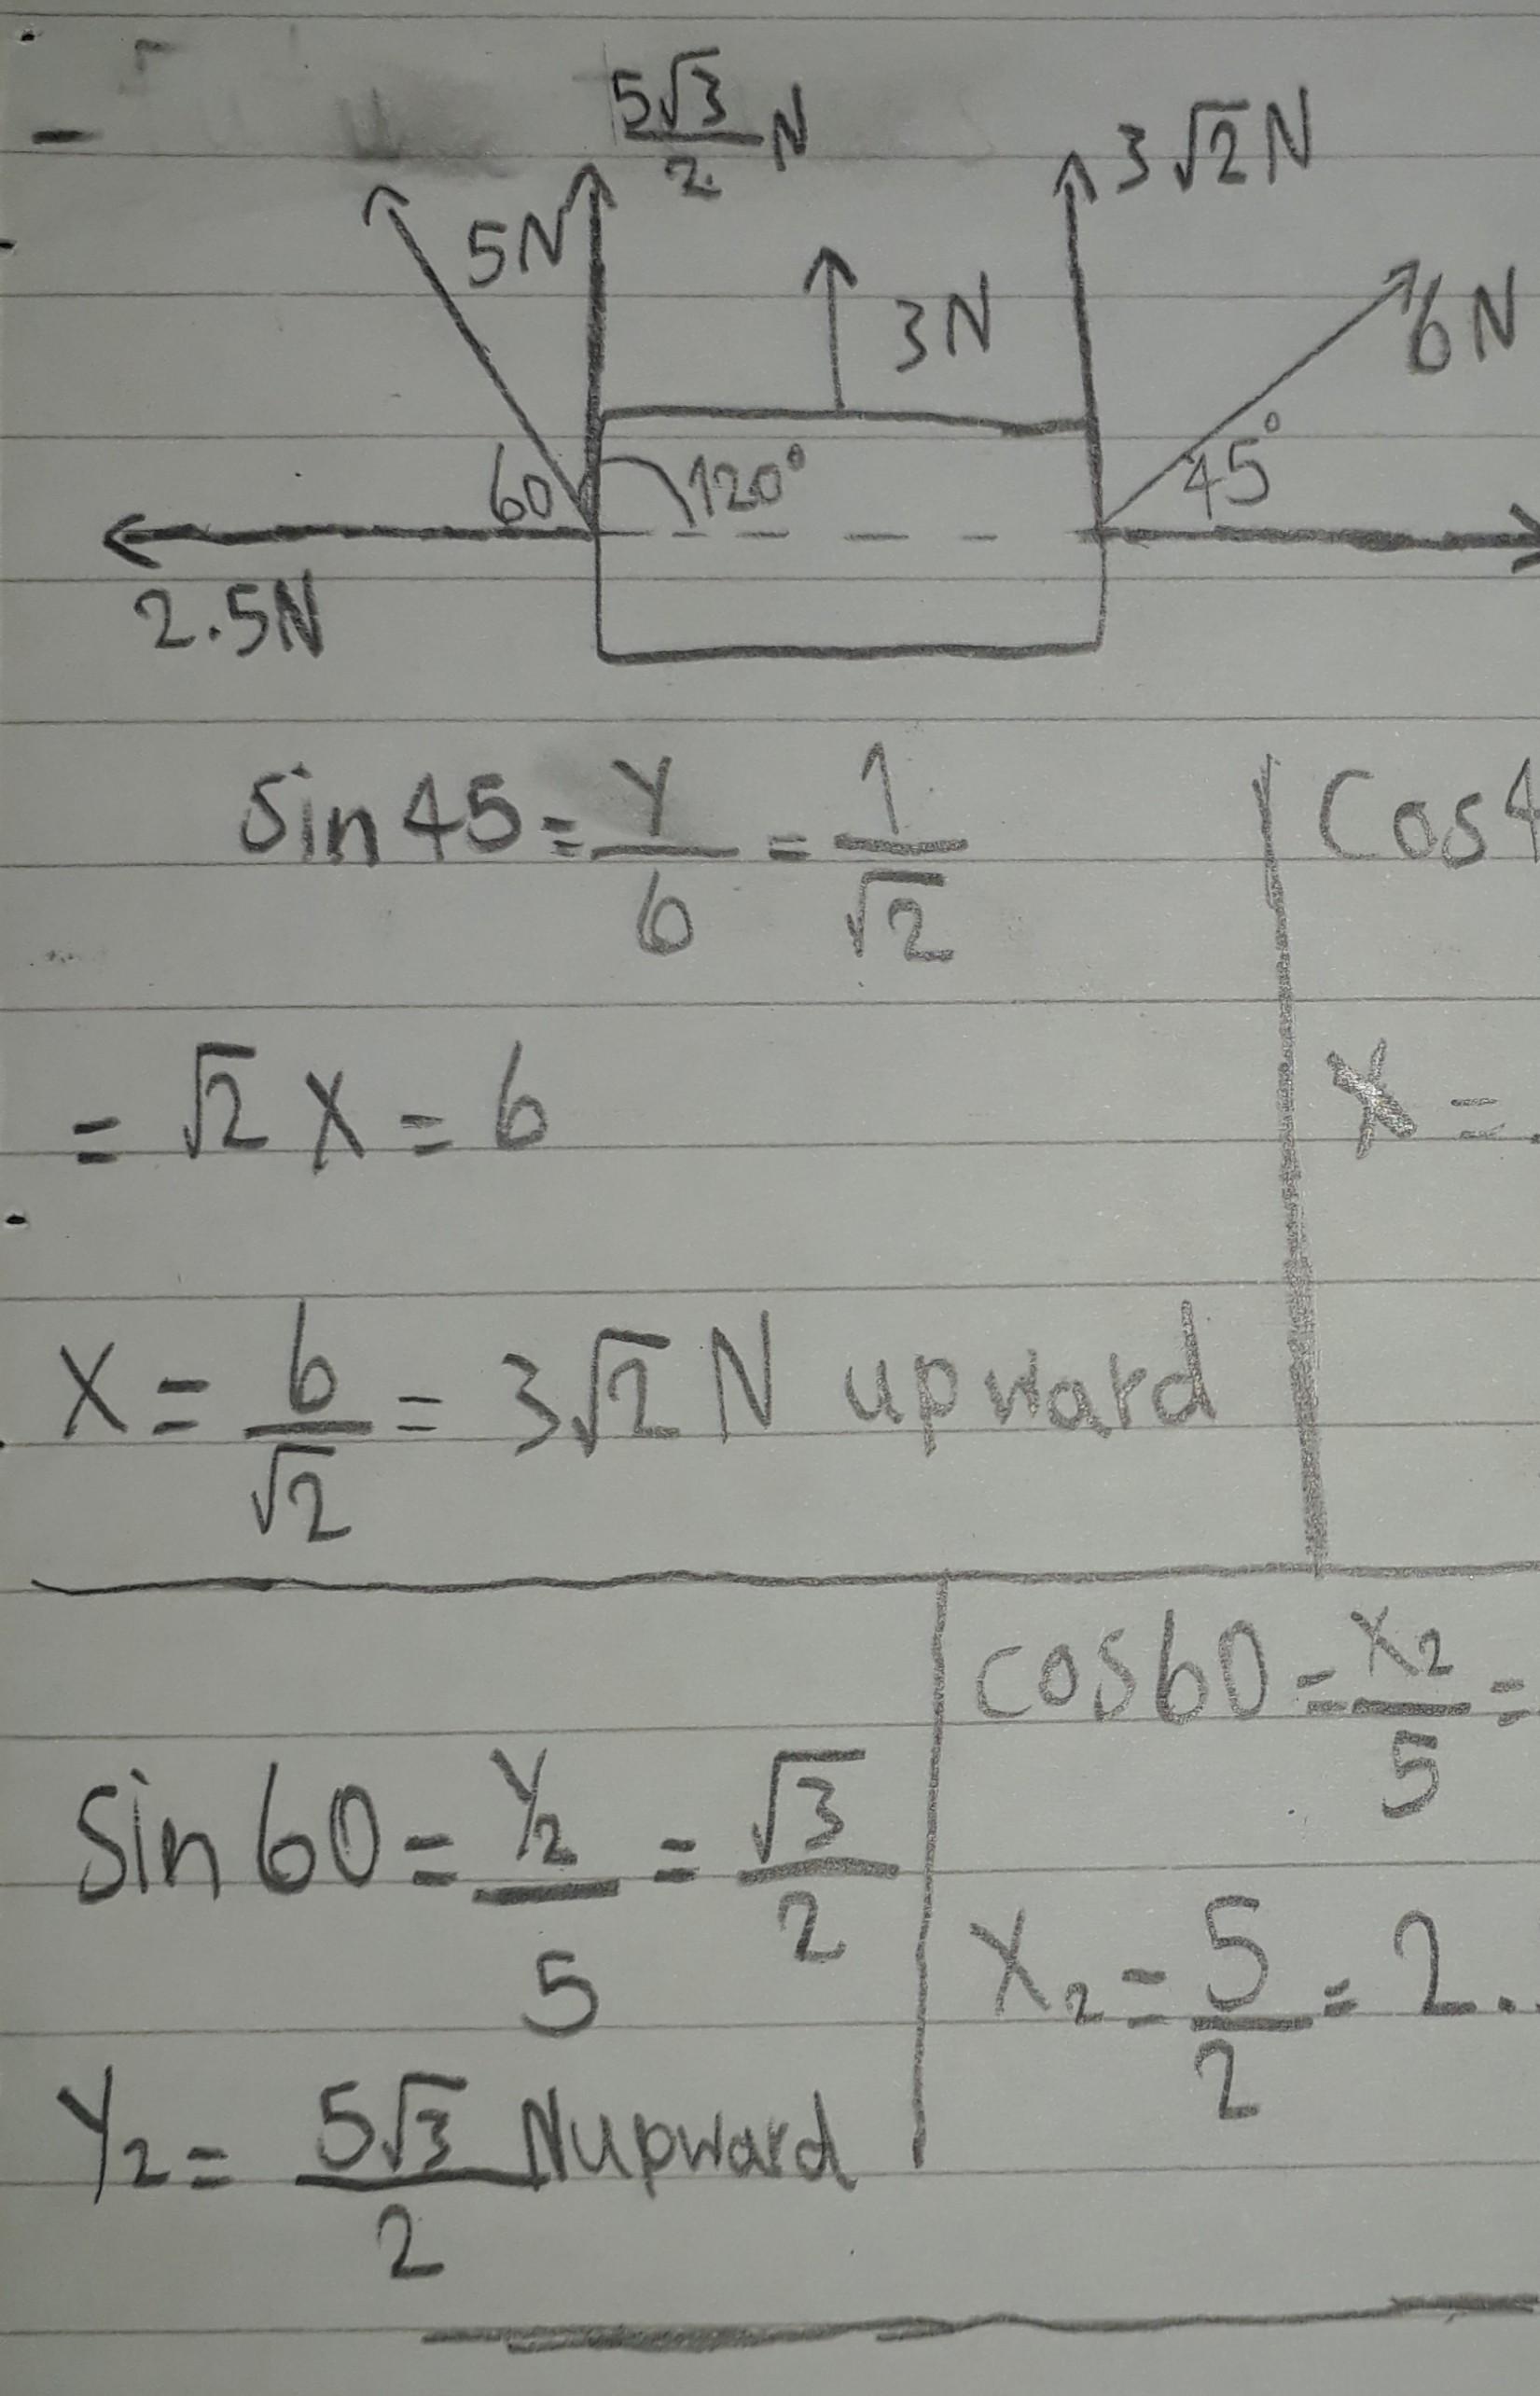 5√3/2 N
3√2 N
5N
3N
6N
60
120°
45°
2.5N
Sin 45 = Y/6 = 1/√2
Cos4
= √2 X = 6
X = .
X = 6/√2 = 3√2 N upward
cos60 = X₂/5 =
Sin 60 = Y₂/5 = √3/2
X₂ = 5/2 = 2.
Y₂ = 5√3/2 N upward